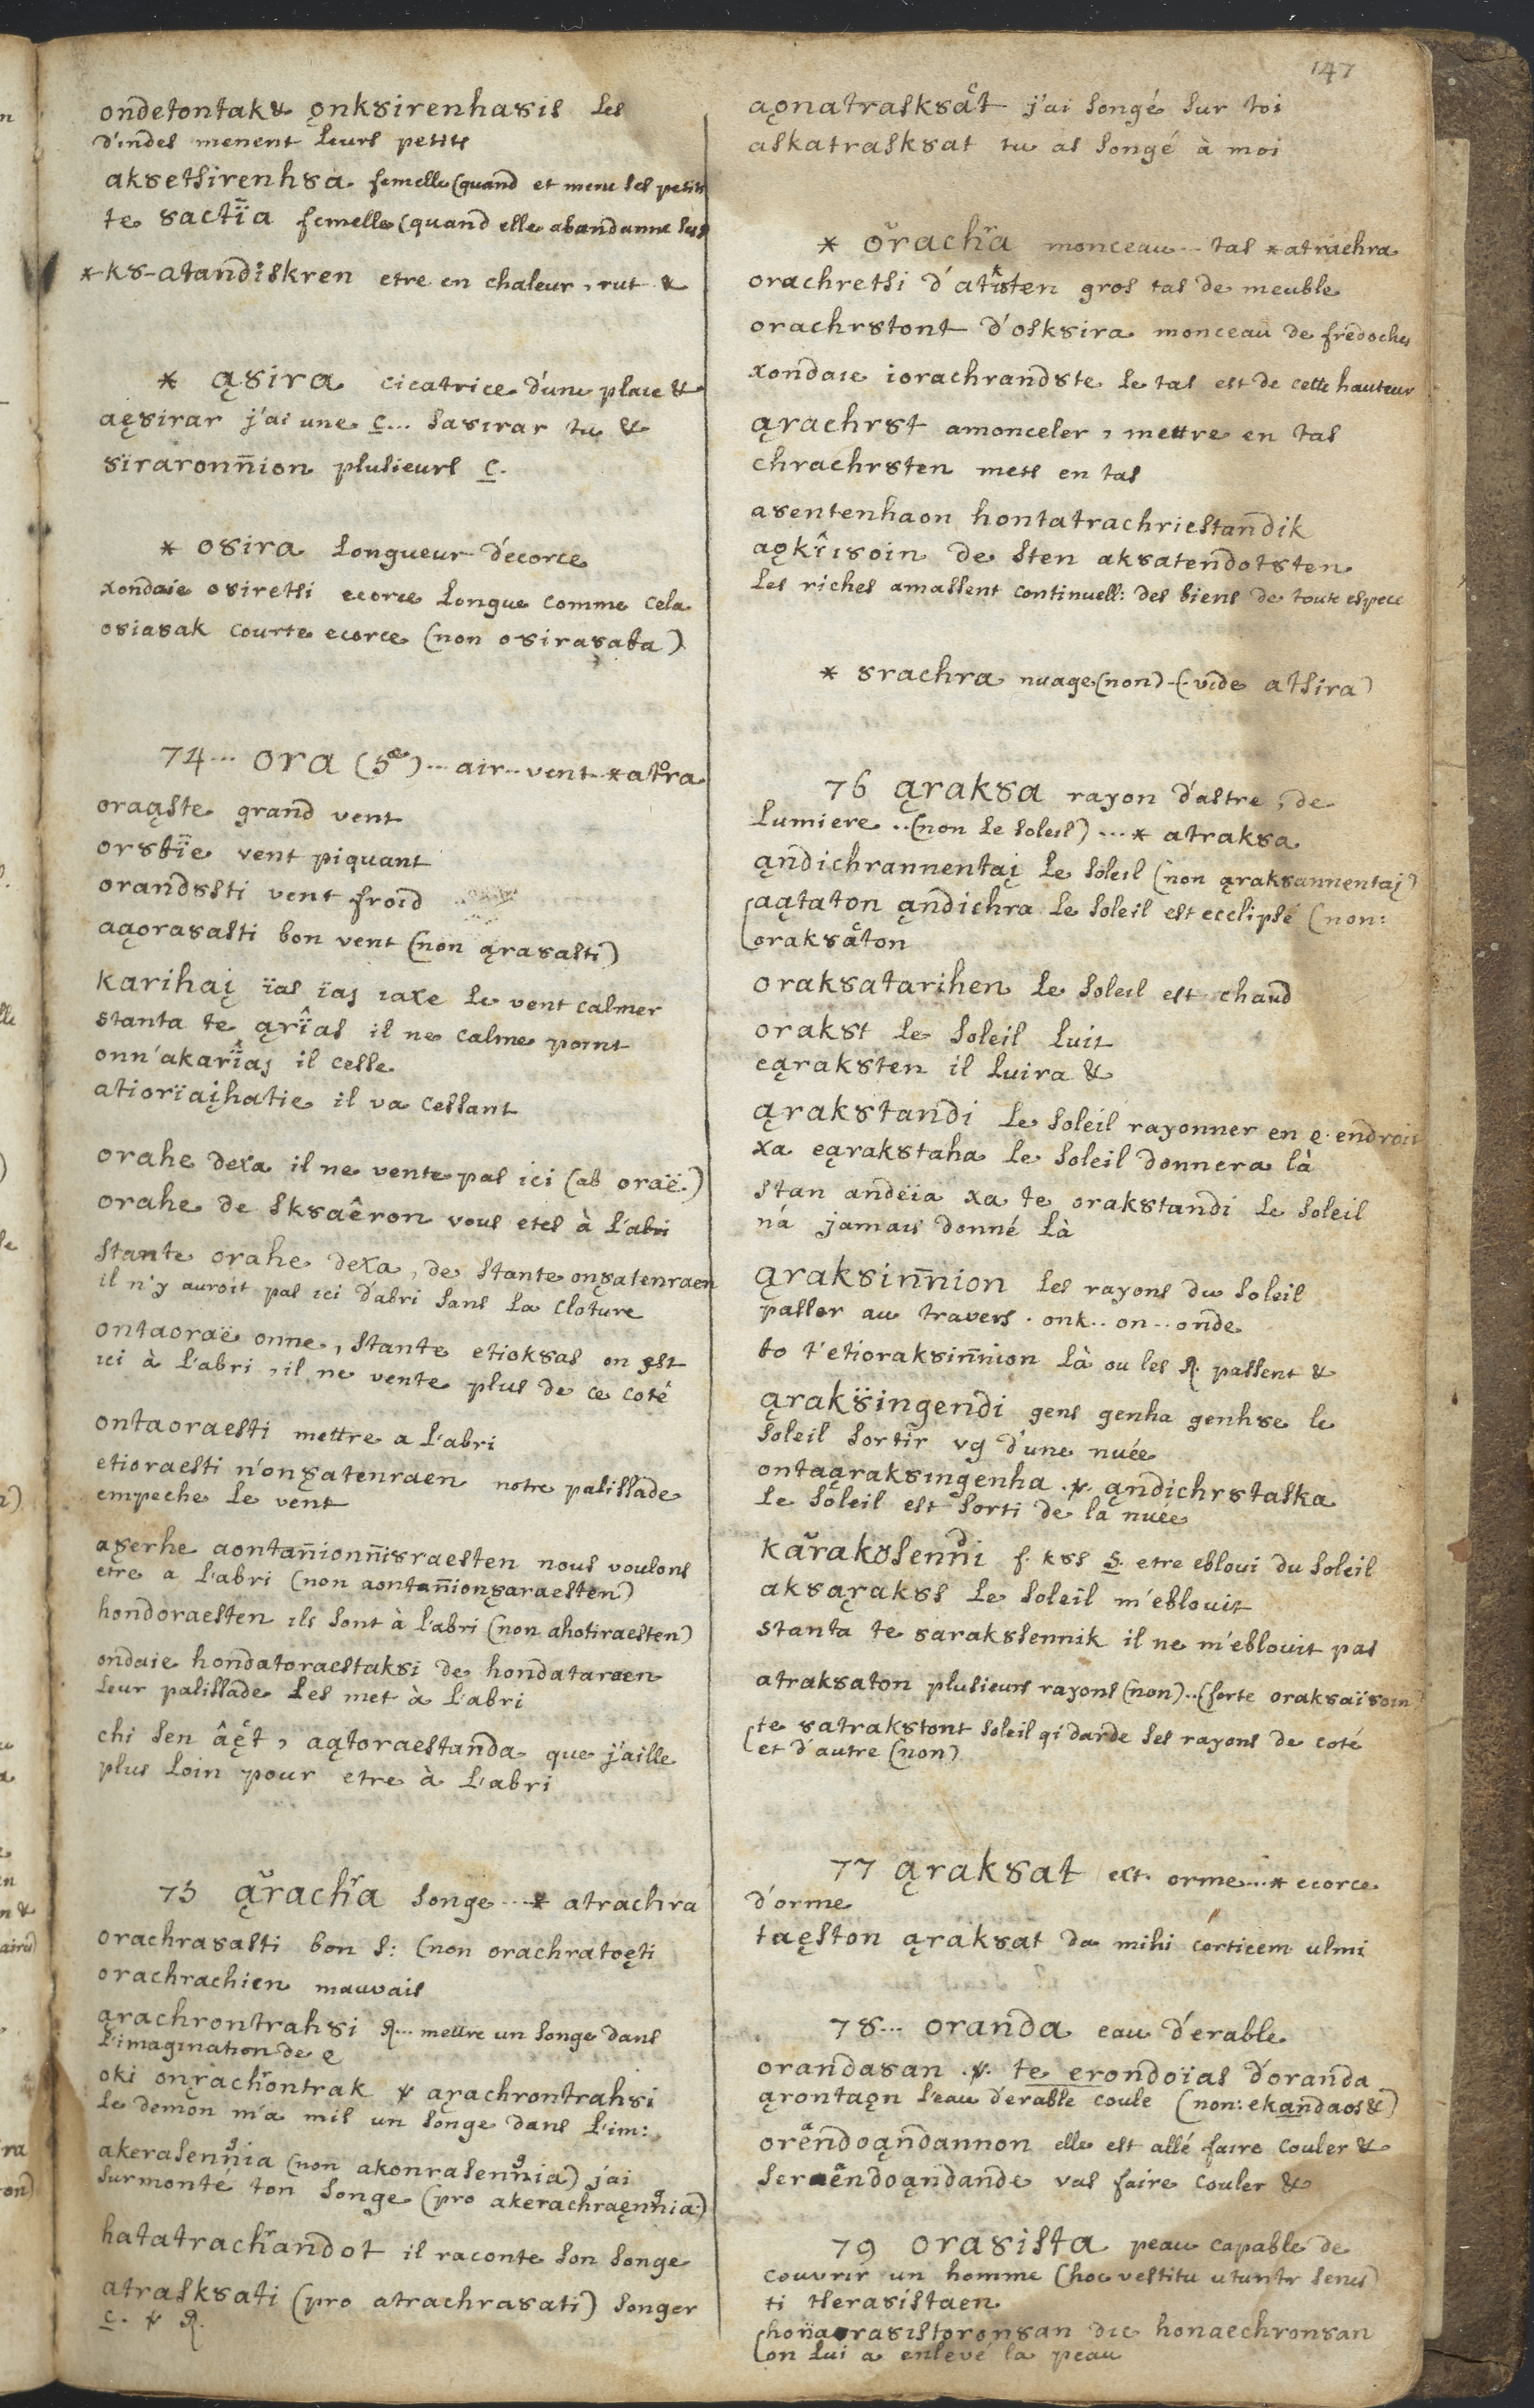 147
ondetontak& ǫnkȣirenhaȣis les
d'indes menent leurs petits
akȣetsirenhȣa femelle (quand et mene ses petits
te ȣactïa femelle (quand elle abandonne ses
*-kȣ-atandiskren etre en chaleur, rut &
* ąȣira cicatrice d'une plaie &
aęȣirar j'ai une c... saȣirar tu &
ȣïraronn̄ion plusieurs c.
* oȣira longueur d'écorce
xondaie oȣiretsi ecorce longue comme cela
oȣiaȣak courte ecorce (non oȣiraȣaba)
74... ora (5e)... air.. vent *atora
oraąste grand vent
orȣtïe vent piquant
orandȣsti vent froid
aąoraȣasti bon vent (non ąraȣasti)
karihaį ïas ïaį iaxe le vent calmer
stanta te ąrîas il ne calme point
onn'akarîaį il cesse
atiorïaįhatie il va cessant
orahe dexa il ne vente pas ici (ab oraë.)
orahe de skȣaêron vous etes à l'abri
stante orahe dexa, de stante onȣatenraen
il n'y auroit pas ici d'abri sans la cloture
ontaoraë onne, stante etiokȣas on est
ici à l'abri, il ne vente plus de ce coté
ontaoraesti mettre a l'abri
etioraesti n'onȣatenraen notre palissade
empeche le vent
aȣerhe aontan̄ionn̄iȣraesten nous voulons
etre a l'abri (non aontan̄ionȣaraesten)
hondoraesten ils sont à l'abri (non ahotiraesten)
ondaie hondatoraestakȣi de hondataraen
leur palissade les met à l'abri
chi sen âęt, aątoraestanda que j'aille
plus loin pour etre à l'abri
75 ąrachra songe...* atrachra
orachraȣasti bon s: (non orachratoęti
orachrachien mauvais
ąrachrontrahȣi R... mettre un songe dans
l'imagination de q
oki onȣrachrontrak ⩛ aąrachrontrahȣi
le demon m'a mis un songe dans l'im:
akerasennia (non akonrasennia) j'ai
surmonté ton songe (pro akerachraęnnia)
hatatrachrandot il raconte son songe
atraskȣati (pro atrachraȣati) songer
c. ⩛ R.
aǫnatraskȣat j'ai songé sur toi
askatraskȣat tu as songé à moi
* orachra monceau.. tas *atrachra
orachretsi d'atisten gros tas de meuble
orachrȣtont d'oskȣira monceau de fredoches
xondaie iorachrandȣte le tas est de cette hauteur
ąrachrȣt amonceler, mettre en tas
chrachrȣten mets en tas
aȣentenhaon hontatrachriestandik
aǫkîȣoin de sten akȣatendotȣten
les riches amassent continuell: des biens de toute espece
* ȣrachra nuage (non) (vide atsira)
76 ąrakȣa rayon d'astre, de
lumiere.. (non le soleil)...* atrakȣa
ąndichrannentaį le soleil (non ąrakȣannentaį)
aątaton ąndichra le soleil est ecclipsé (non:
orakȣaton
orakȣatarihen le soleil est chaud
orakȣt le soleil luit
eąrakȣten il luira &
ąrakȣtandi le soleil rayonner en q. endroit
xa eąrakȣtaha le soleil donnera là
stan andeïa xa te orakȣtandi le soleil
n'a jamais donné là
ąrakȣinn̄ion les rayons du soleil
passer au travers. onk.. on.. onde
to t'etiorakȣinn̄ion là ou les R. passent &
ąrakȣingendi gens genha genhȣe le
soleil sortir vg d'une nuée
ontaąrakȣingenha ⩛ ąndichrȣtaska
le soleil est sorti de la nuée
karakȣsendi f. kȣs S. etre ebloui du soleil
akȣąrakȣs le soleil m'eblouit
stanta te ȣarakȣsennik il ne m'eblouit pas
atrakȣaton plusieurs rayons (non).. (forte orakȣaïȣoin
te ȣatrakȣtont soleil qi darde ses rayons de coté
et d'autre (non)
77 ąrakȣat ext. orme...* ecorce
d'orme
taęston ąrakȣat da mihi corticem ulmi
78... oranda eau d'erable
orandaȣan ⩛ te erondoïas d'oranda
ąrontaǫn l'eau d'erable coule (non: ekandaos &)
orendoąndannon elle est allé faire couler &
seraendoąndande vas faire couler &
79 oraȣista peau capable de
couvrir un homme (hoc vestitu utuntr senes)
ti tseraȣistaen
hon̄aoraȣistoronȣan dic honaechronȣan
on lui a enlevé la peau